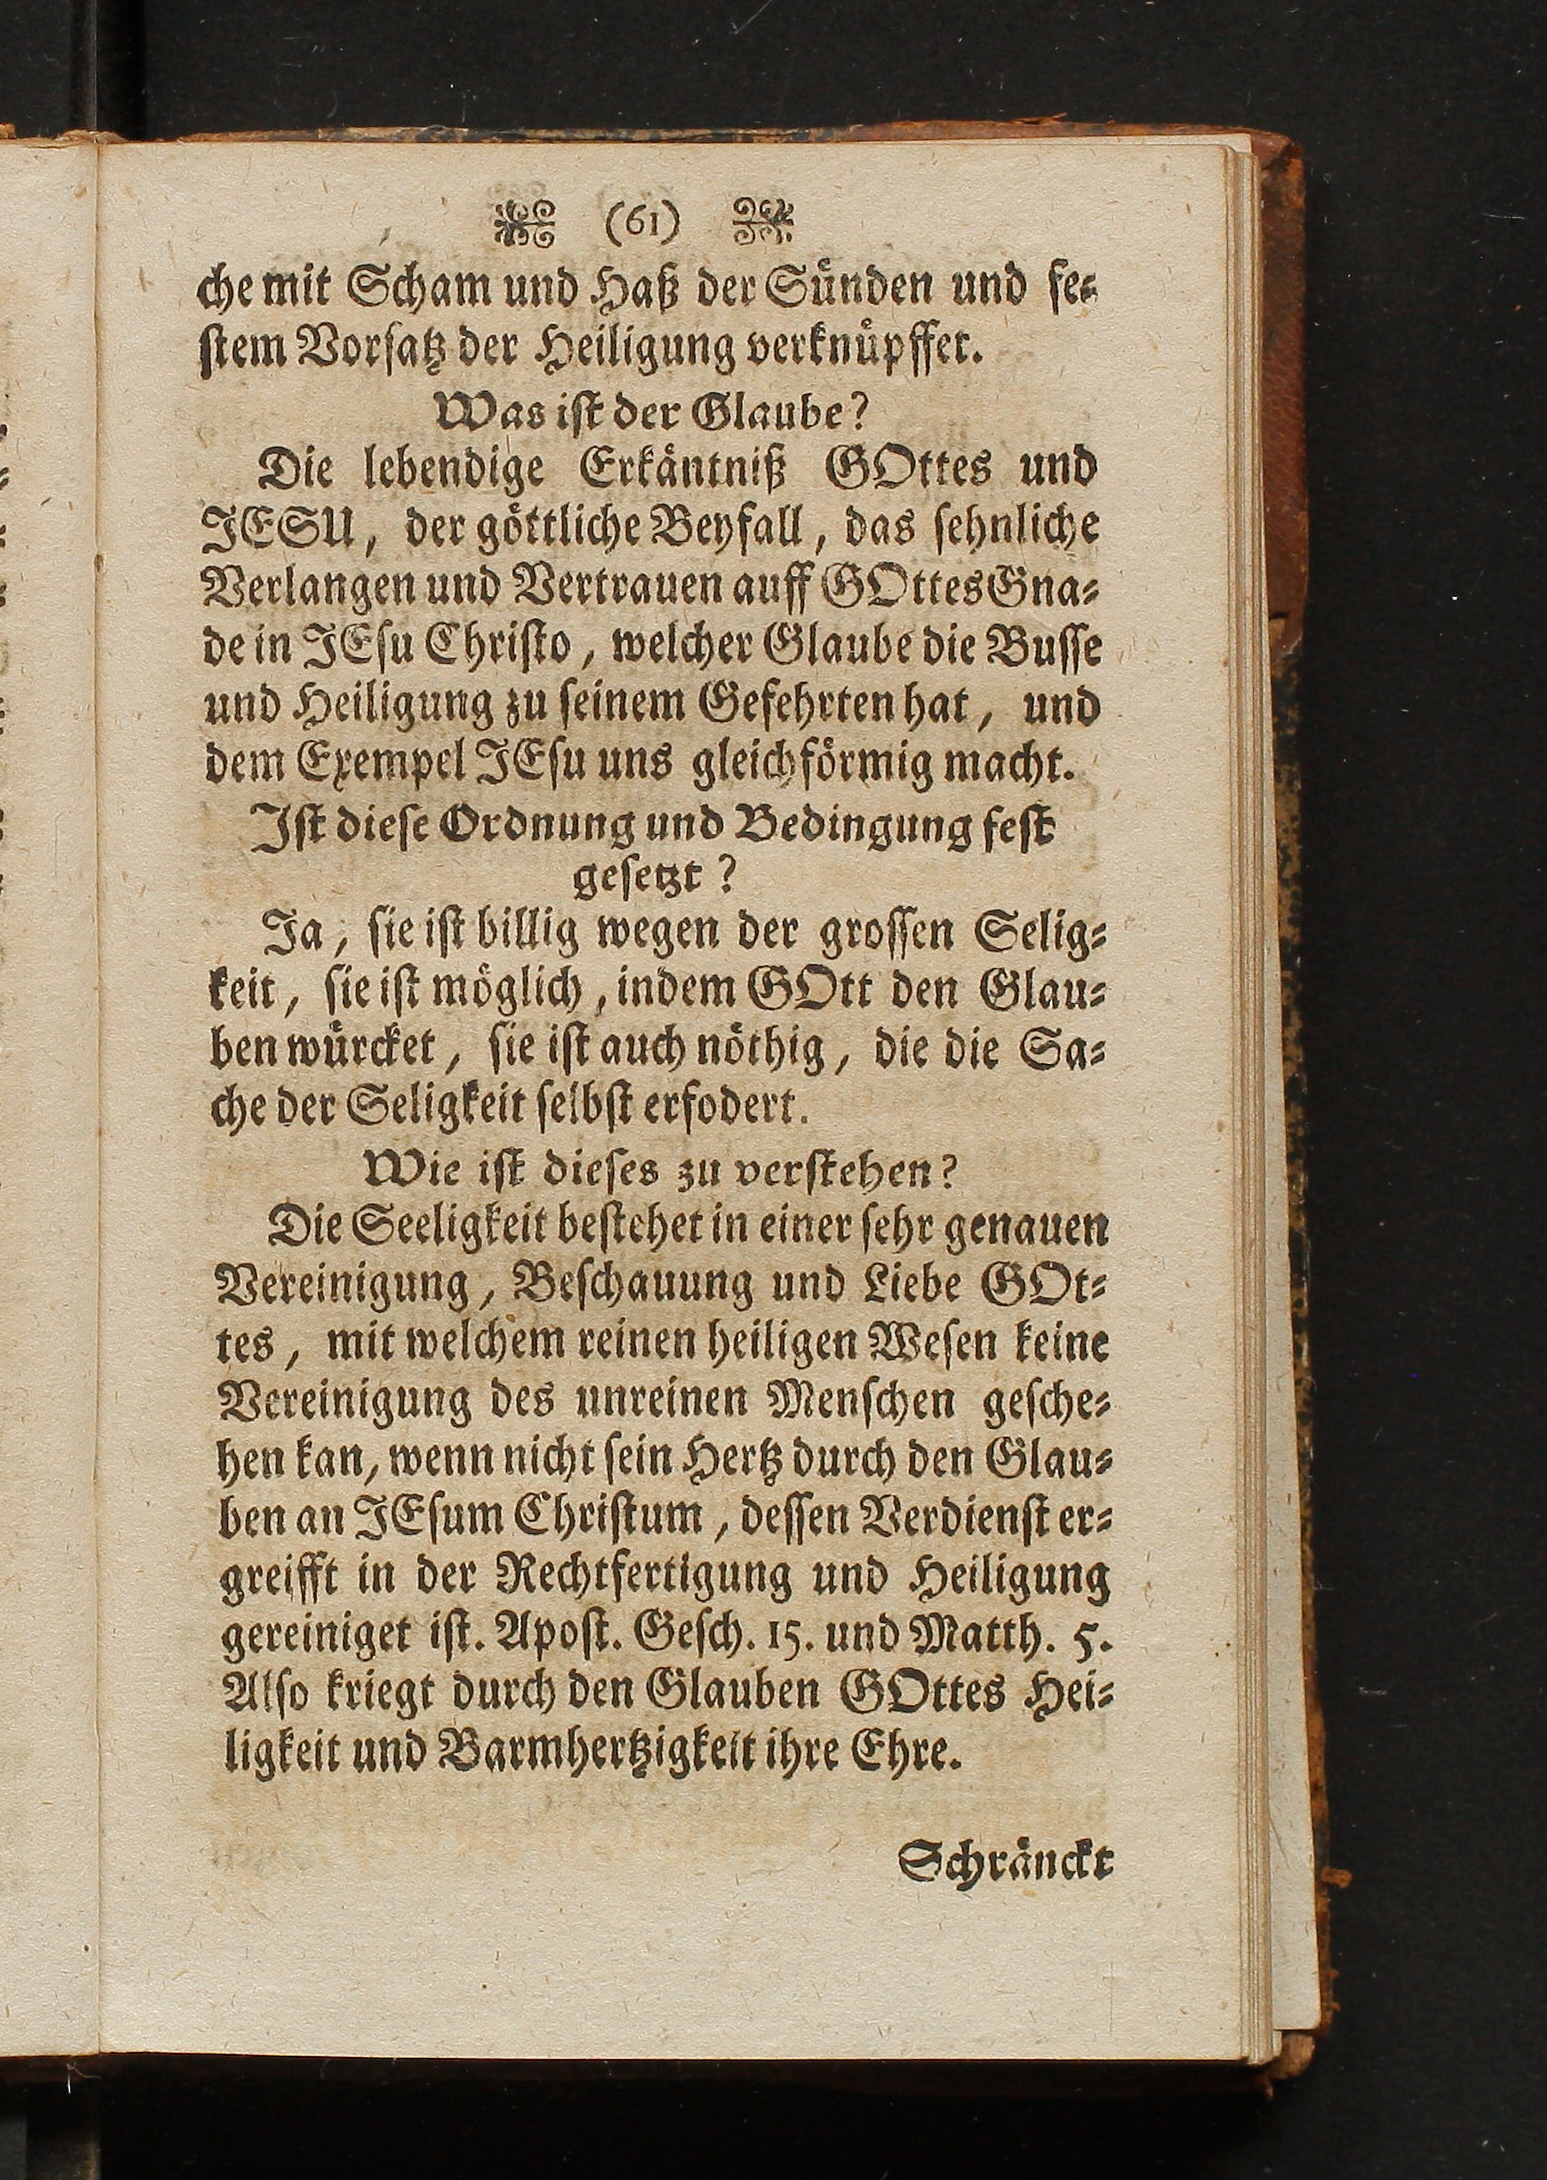 (61)
che mit Scham und Haß der Sünden und fe⸗
ſtem Vorſatz der Heiligung verknüpffet.
Was iſt der Glaube?
Die lebendige Erkäntniß GOttes und
JESU, der göttliche Beyfall, das ſehnliche
Verlangen und Vertrauen auff GOttes Gna⸗
de in JEſu Chriſto, welcher Glaube die Buſſe
und Heiligung zu ſeinem Gefehrten hat, und
dem Exempel JEſu uns gleichförmig macht.
Iſt dieſe Ordnung und Bedingung feſt
geſetzt?
Ja, ſie iſt billig wegen der groſſen Selig⸗
keit, ſie iſt möglich, indem GOtt den Glau⸗
ben würcket, ſie iſt auch nöthig, die die Sa⸗
che der Seligkeit ſelbſt erfodert.
Wie iſt dieſes zu verſtehen?
Die Seeligkeit beſtehet in einer ſehr genauen
Vereinigung, Beſchauung und Liebe GOt⸗
tes, mit welchem reinen heiligen Weſen keine
Vereinigung des unreinen Menſchen geſche⸗
hen kan, wenn nicht ſein Hertz durch den Glau⸗
ben an JEſum Chriſtum, deſſen Verdienſt er⸗
greifft in der Rechtfertigung und Heiligung
gereiniget iſt. Apoſt. Geſch. 15. und Matth. 5.
Alſo kriegt durch den Glauben GOttes Hei⸗
ligkeit und Barmhertzigkeit ihre Ehre.
Schränckt